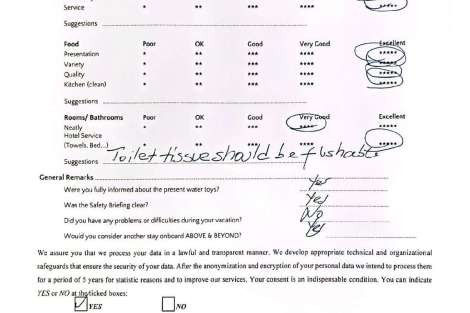 Service * ** *** **** *****
Suggestions
Food Poor OK Good Very Good Excellent
Presentation * ** *** **** *****
Variety * ** *** **** *****
Quality * ** *** **** *****
Kitchen (clean) * ** *** **** *****
Suggestions
Rooms/ Bathrooms Poor OK Good Very Good Excellent
Neatly * ** *** **** *****
Hotel Service
(Towels, Bed...) * ** *** **** *****
Suggestions Toilet tissue should be flushable
General Remarks
Were you fully informed about the present water toys? Yes
Was the Safety Briefing clear? Yes
Did you have any problems or difficulties during your vartation? No
Would you consider another stay onboard ABOVE & BEYOND? Yes
We assure you that we process your data in a lawful and transparent manner. We develop appropriate technical and organizational
safeguards that ensure the security of your data. After the anonymization and encryption of your personal data we intend to process them
for a period of 5 years for statistic reasons and to improve our services. Your consent is an indispensable condition. You can indicate
YES or NO at the ticked boxes:
YES NO